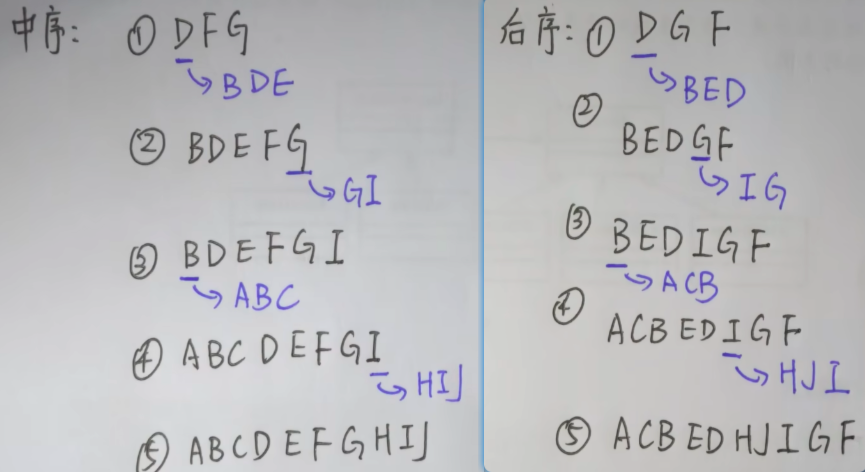 中序: ① DFG
BDE
② BDEFG
GI
③ BDEFGI
ABC
④ ABCDEFGI
HIJ
⑤ ABCDEFGHIJ
后序: ① DGF
BED
②
BEDGF
IG
③
BEDIGF
ACB
④
ACBEDIGF
HJI
⑤ ACBEDHJIGF